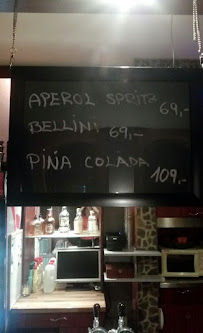 APEROL SPRITZ 69,-
BELLINI 69,-
PIÑA COLADA 109,-